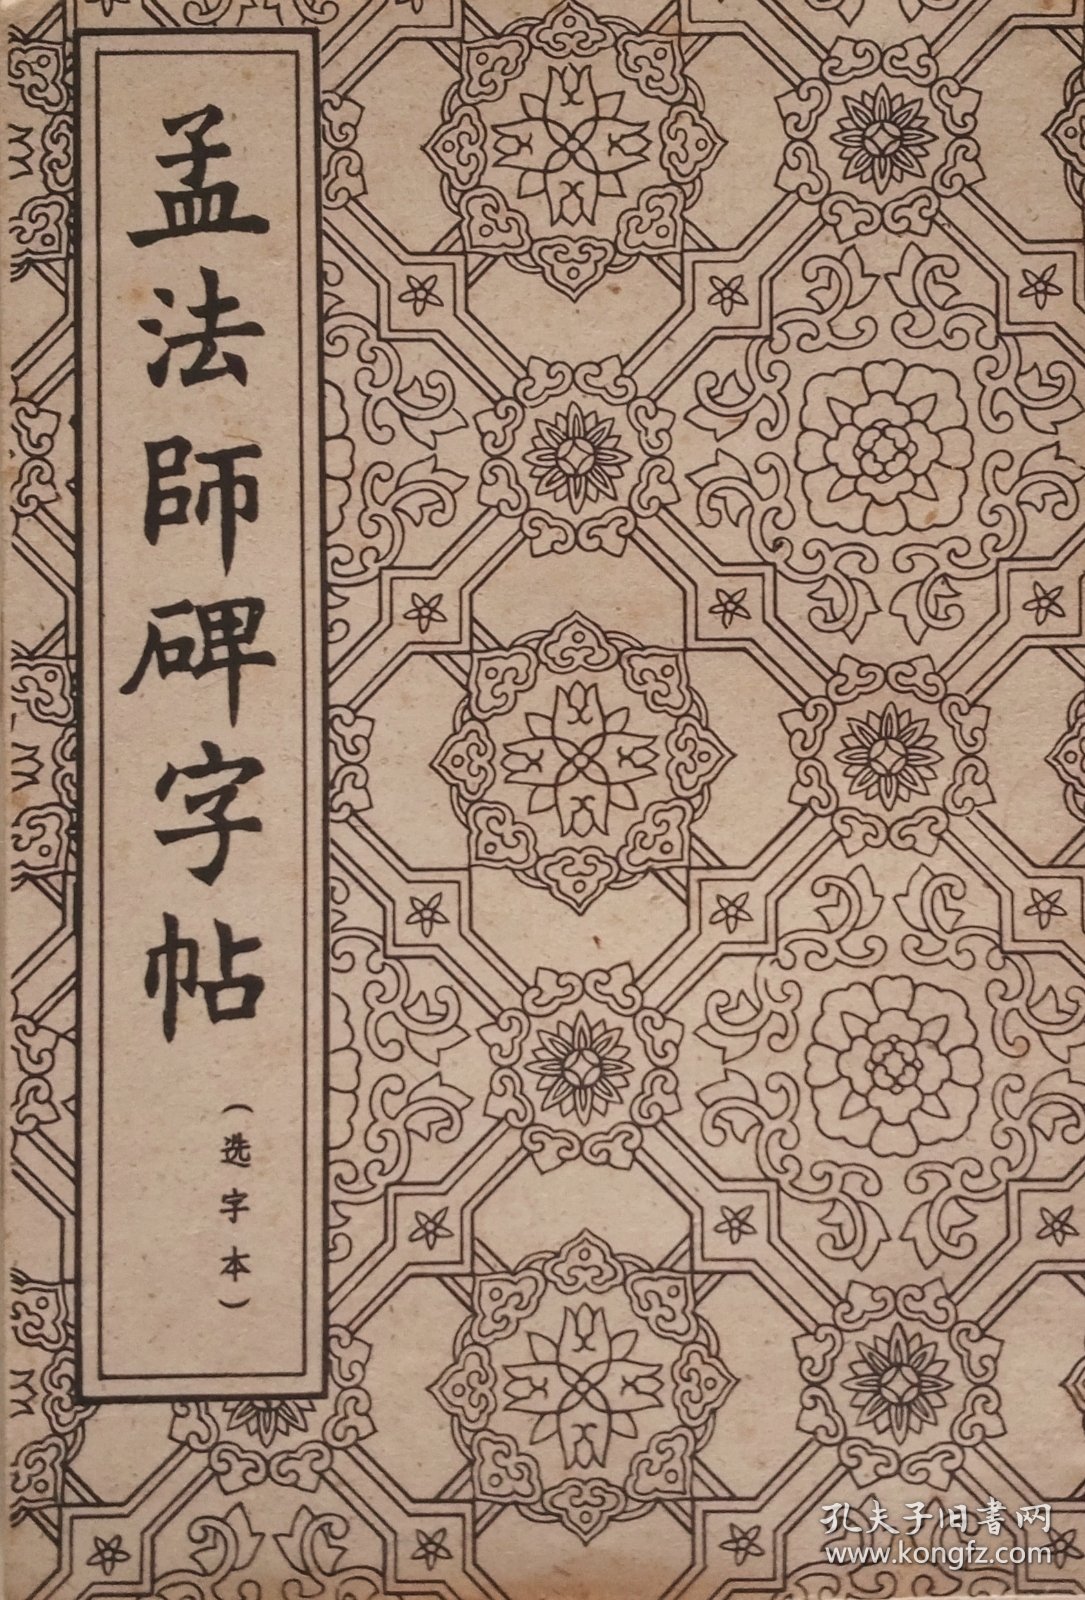 孟法師碑字帖
（选字本）
孔夫子旧書网
www.kongfz.com